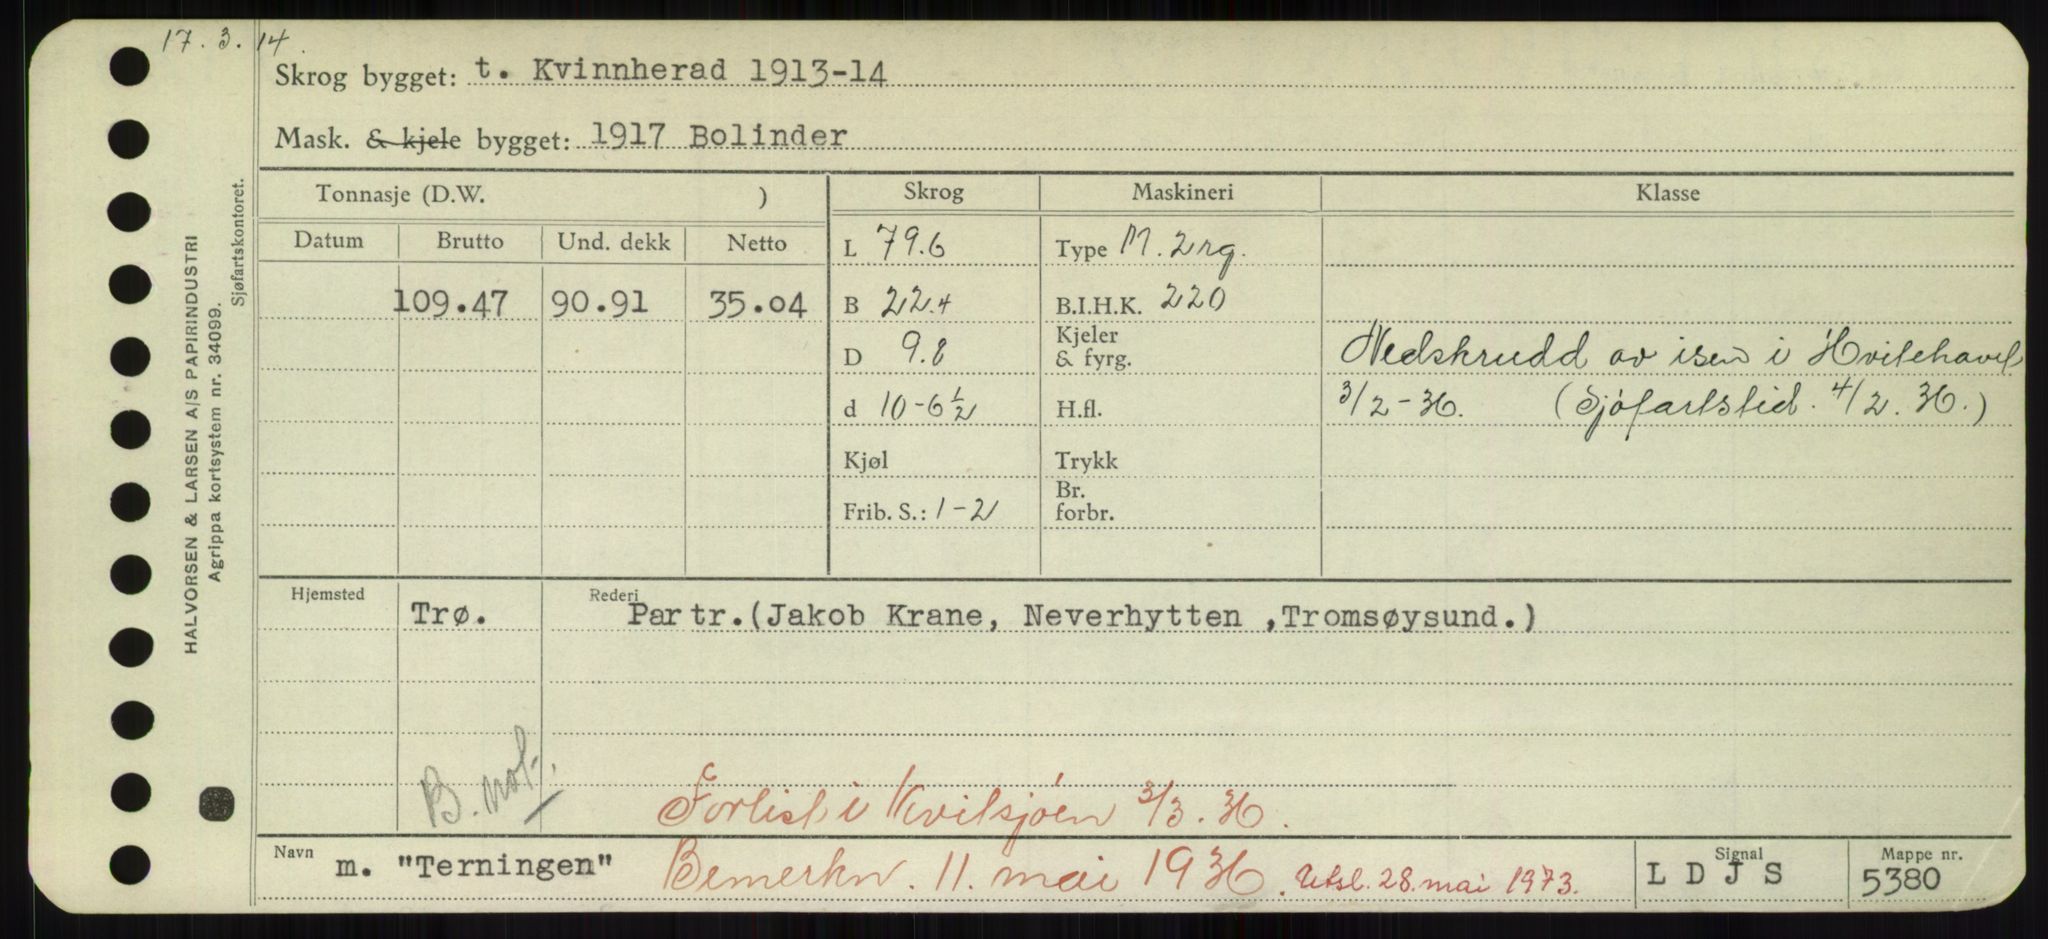 17.3.14.
Skrog bygget: t. Kvinnherad 1913-14
Mask. & kjele bygget: 1917 Bolinder
Tonnasje (D.W. ) Skrog Maskineri Klasse
Datum Brutto Und. dekk Netto L 79.6 Type M. 2rg.
109.47 90.91 35.04 B 22.4 B.I.H.K. 220
D 9.8 Kjeler & fyrg. Nedskrudd av isen i Hvitehavet
d 10-6½ H.fl. 3/2-36. (Sjøfartstid. 4/2.36.)
Kjøl Trykk
Frib. S.: 1-2 Br. forbr.
Hjemsted Trø. Rederi Partr.(Jakob Krane, Neverhytten ,Tromsøysund.)
B. not.
Forlist i Kvitsjøen 3/3.36.
Navn m. "Terningen" Bemerkn. 11. mai 1936. Utsl. 28. mai 1973. Signal L D J S Mappe nr. 5380
HALVORSEN & LARSEN A/S PAPIRINDUSTRI
Agrippa kortsystem nr. 34099.
Sjøfartskontoret.